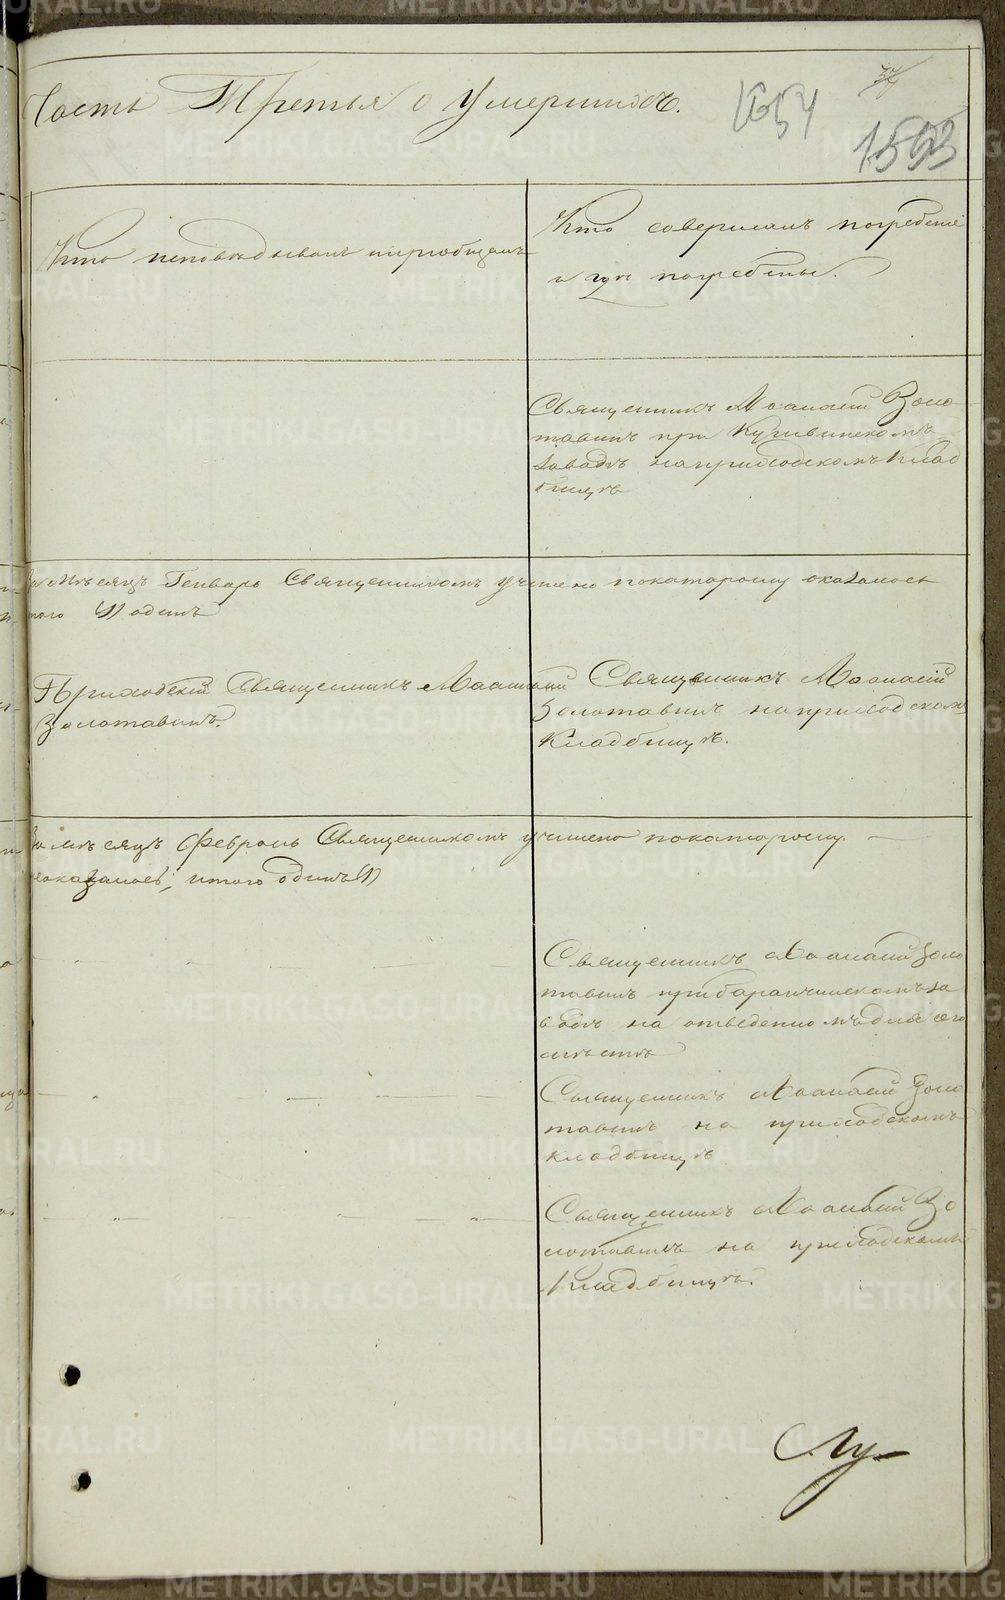 Часть Третья о умершихъ.
37
1654
1593
Кто исповѣдывалъ и приобщалъ
Кто совершалъ погребеніе
и гдѣ погребены.
Священникъ Аѳанасій Золо
тавинъ при Кушвинскомъ
заводѣ на приходскомъ клад
бищѣ
За мѣсяцъ Генварь Священникомъ учинено по которому оказалось
того (1) одинъ
Приходскій Священникъ Аѳанасій
Золотавинъ.
Священникъ Аѳанасій
Золотавинъ на приходскомъ
Кладбищѣ.
За мѣсяцъ Февраль Священникомъ учинено по которому
оказалось, итого одинъ (1)
Священникъ Аѳанасій Золо
тавинъ при Баранчинскомъ за
водѣ на отведенномъ для сего
мѣстѣ
Священникъ Аѳанасій Золо
тавинъ на приходскомъ
кладбищѣ
Священникъ Аѳанасій Зо
лотавинъ на приходскомъ
Кладбищѣ.
METRIKI.GASO-URAL.RU